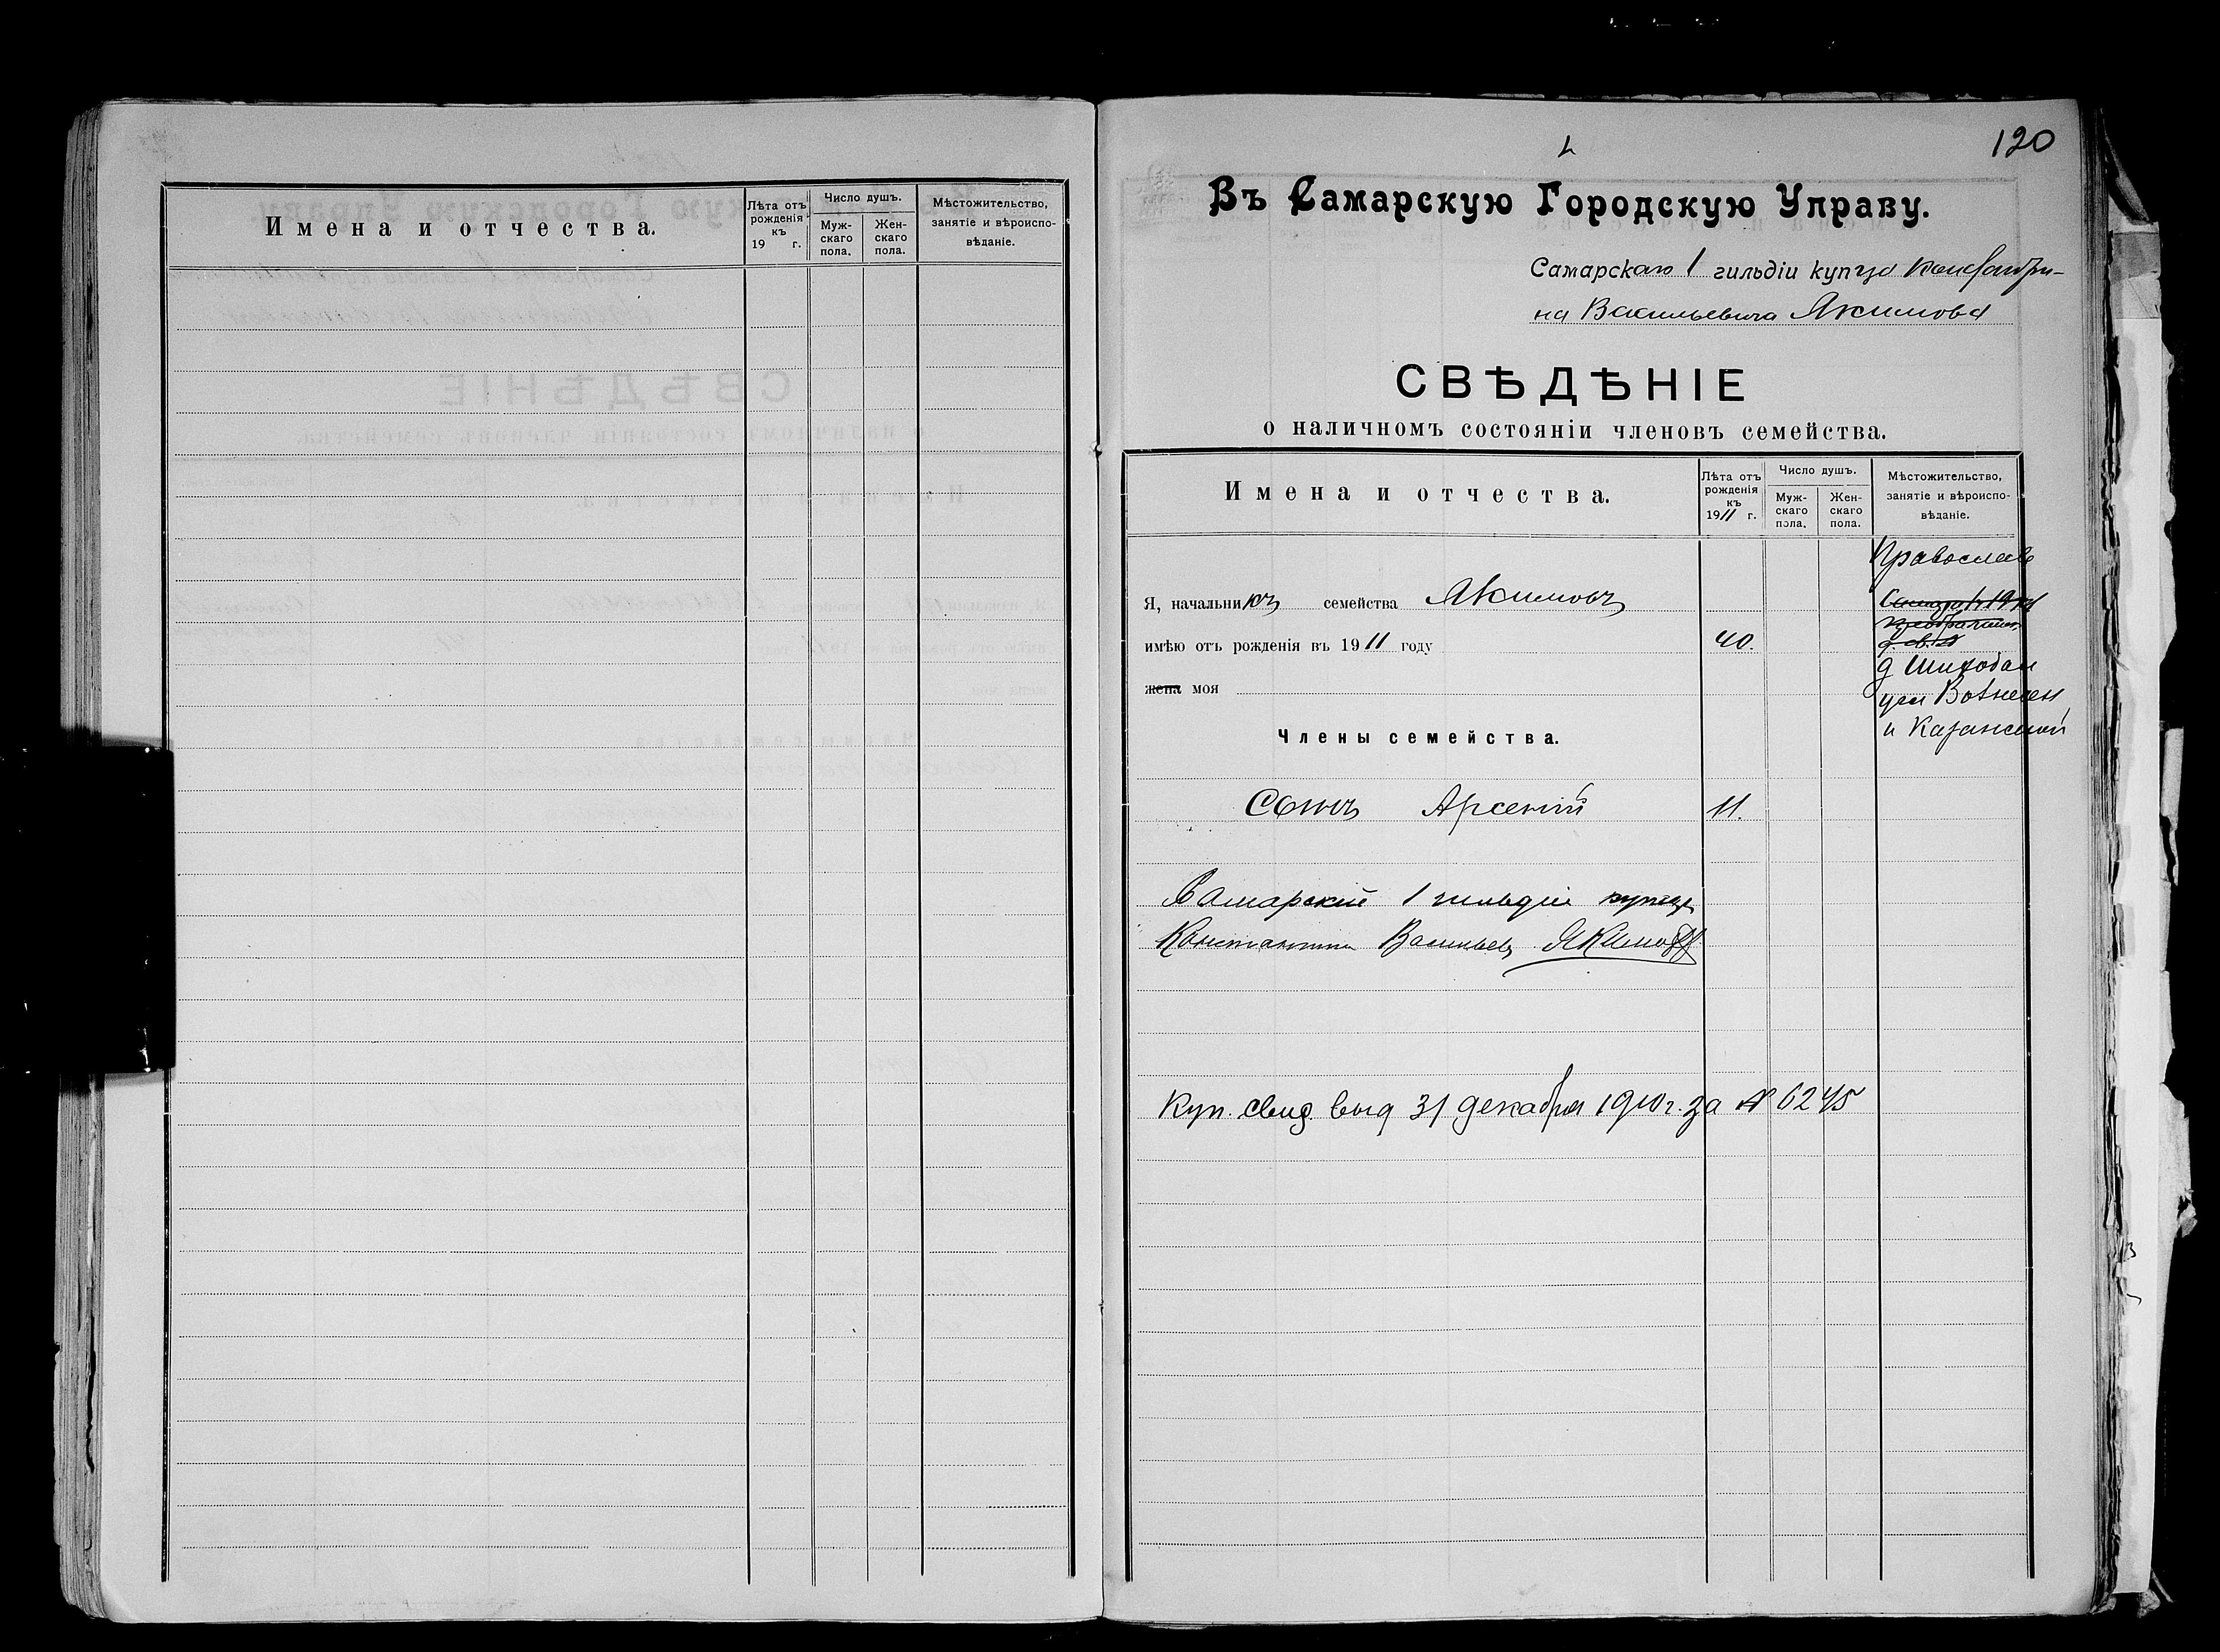 Имена и отчества.
Лѣта отъ рожденія къ 19 г.
Число душъ.
Муж-скаго пола.
Жен-скаго пола.
Мѣстожительство, занятіе и вѣроиспо-вѣданіе.
120
Въ Самарскую Городскую Управу.
Самарскаго 1 гильдіи купца Константи-
на Васильевича Якимова
СВѢДѢНІЕ
о наличномъ состояніи членовъ семейства.
Имена и отчества.
Лѣта отъ рожденія къ 1911 г.
Число душъ.
Муж-скаго пола.
Жен-скаго пола.
Мѣстожительство, занятіе и вѣроиспо-вѣданіе.
Православ
Я, начальникъ семейства Якимовъ
имѣю отъ рожденія въ 1911 году 40.
д Шихобал
жена моя
уг Вознесен
и Казанской
Члены семейства.
Сынъ Арсеній 11.
Самарскій 1 гильдіи купецъ
Константинъ Васильевъ Якимовъ
Куп. свид. выд 31 декабря 1910 г. за № 6245